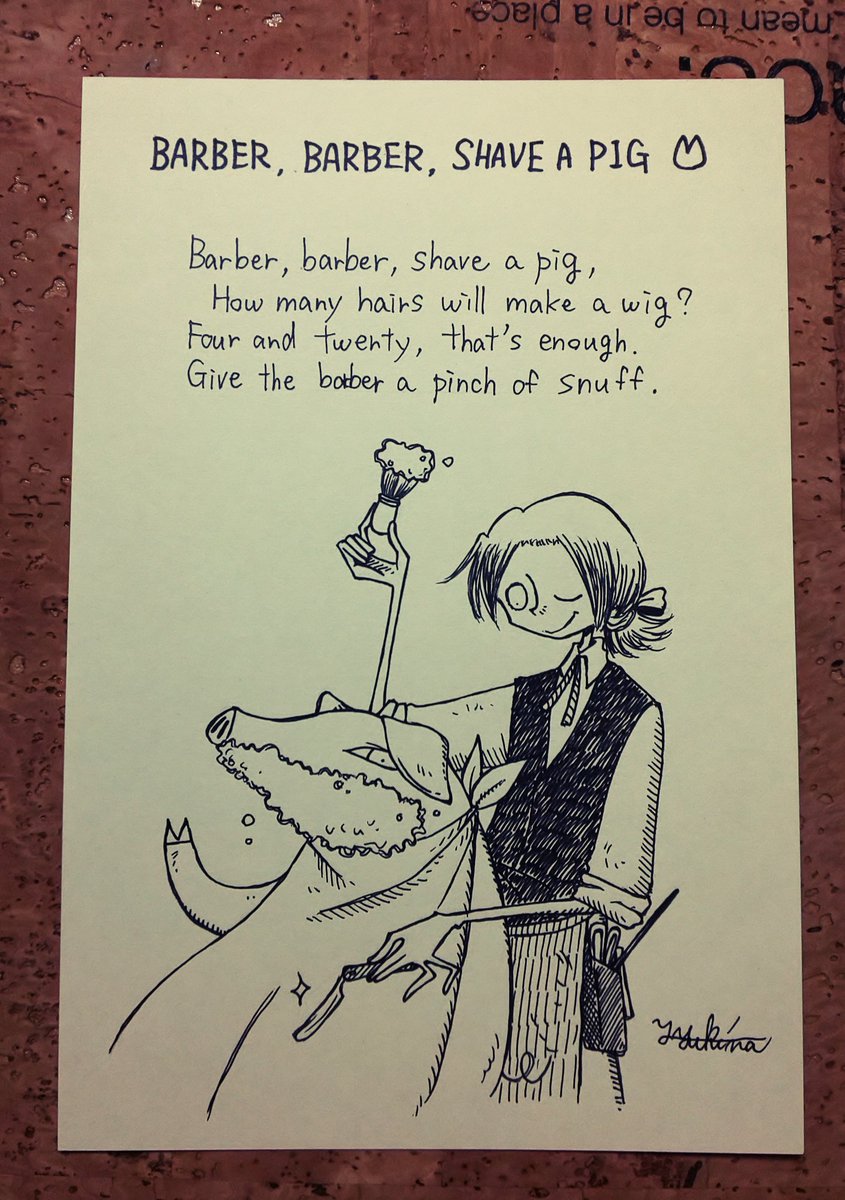 mean to be in a place
BARBER, BARBER, SHAVE A PIG
Barber, barber, shave a pig,
How many hairs will make a wig?
Four and twenty, that's enough.
Give the barber a pinch of snuff.
Yukina